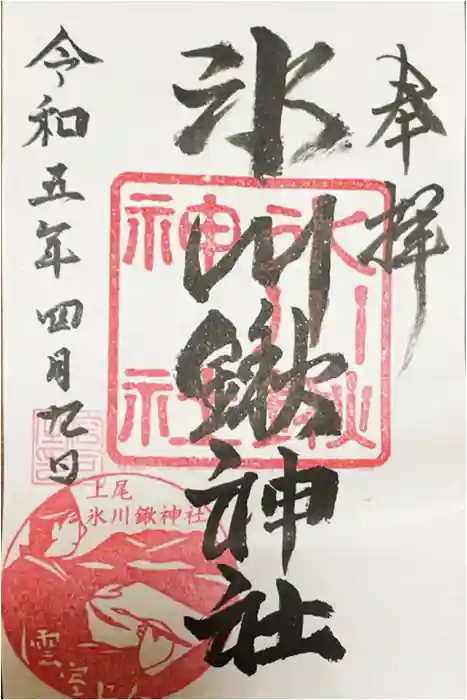 奉拝
氷川鍬神社
令和五年四月九日
氷川鍬神社
上尾
氷川鍬神社
雲室